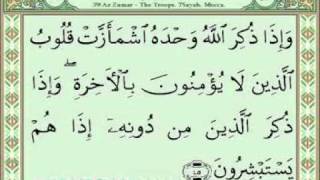 39 Az Zumar - The Troops. 75ayah. Mecca.
وَإِذَا ذُكِرَ ٱللَّهُ وَحْدَهُ ٱشْمَأَزَّتْ قُلُوبُ
ٱلَّذِينَ لَا يُؤْمِنُونَ بِٱلْأَخِرَةِ ۖ وَإِذَا
ذُكِرَ ٱلَّذِينَ مِن دُونِهِۦٓ إِذَا هُمْ
يَسْتَبْشِرُونَ ٤٥